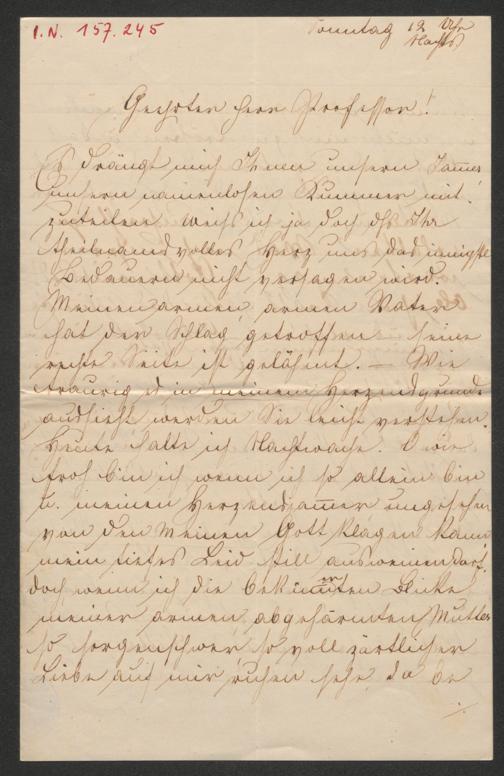 I.N. 157.245
Sonntag 12 Uhr
Nachts
Geehrter Herr Professor!
Es drängt mich Ihnen unsern Jam̅er
unsern namenlosen Kummer mit
zuteilen weiß ich ja doch dß Ihr
theilnamsvolles Herz uns das innigste
Bedauern nicht versagen wird.
Meinen armen, armen Vater
hat der Schlag getroffen seine
rechte Seite ist gelähmt. — Wie
traurig es in meinem Herzensgrunde
aussieht werden Sie leicht verstehen.
Heute halte ich Nachtwache. O wie
froh bin ich wenn ich so allein bin
u. meinen Herzensjam̅er ungesehen
von den Meinen Gott klagen kann
mein tiefes Leid still ausweinen darf.
doch wenn ich die Blicke
meiner armen, abgehärmten Mutter
so sorgenschwer, so voll zärtlicher
Liebe auf mir ruhen sehe, da be
./.